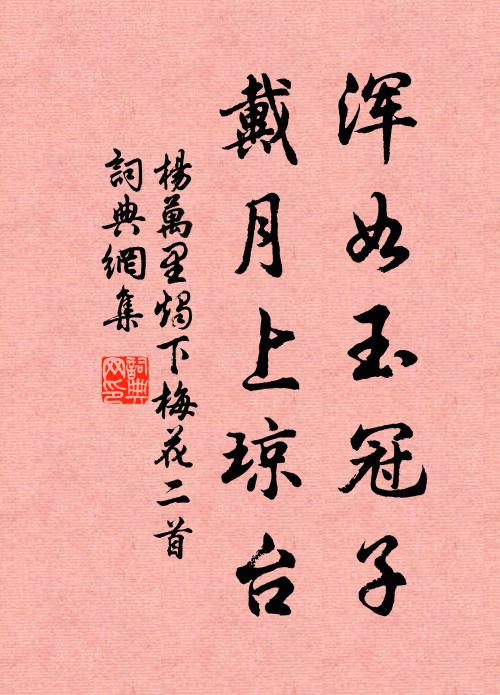 浑如玉冠子
戴月上琼台
楊萬里燭下梅花二首
詞典網集
詞典网印